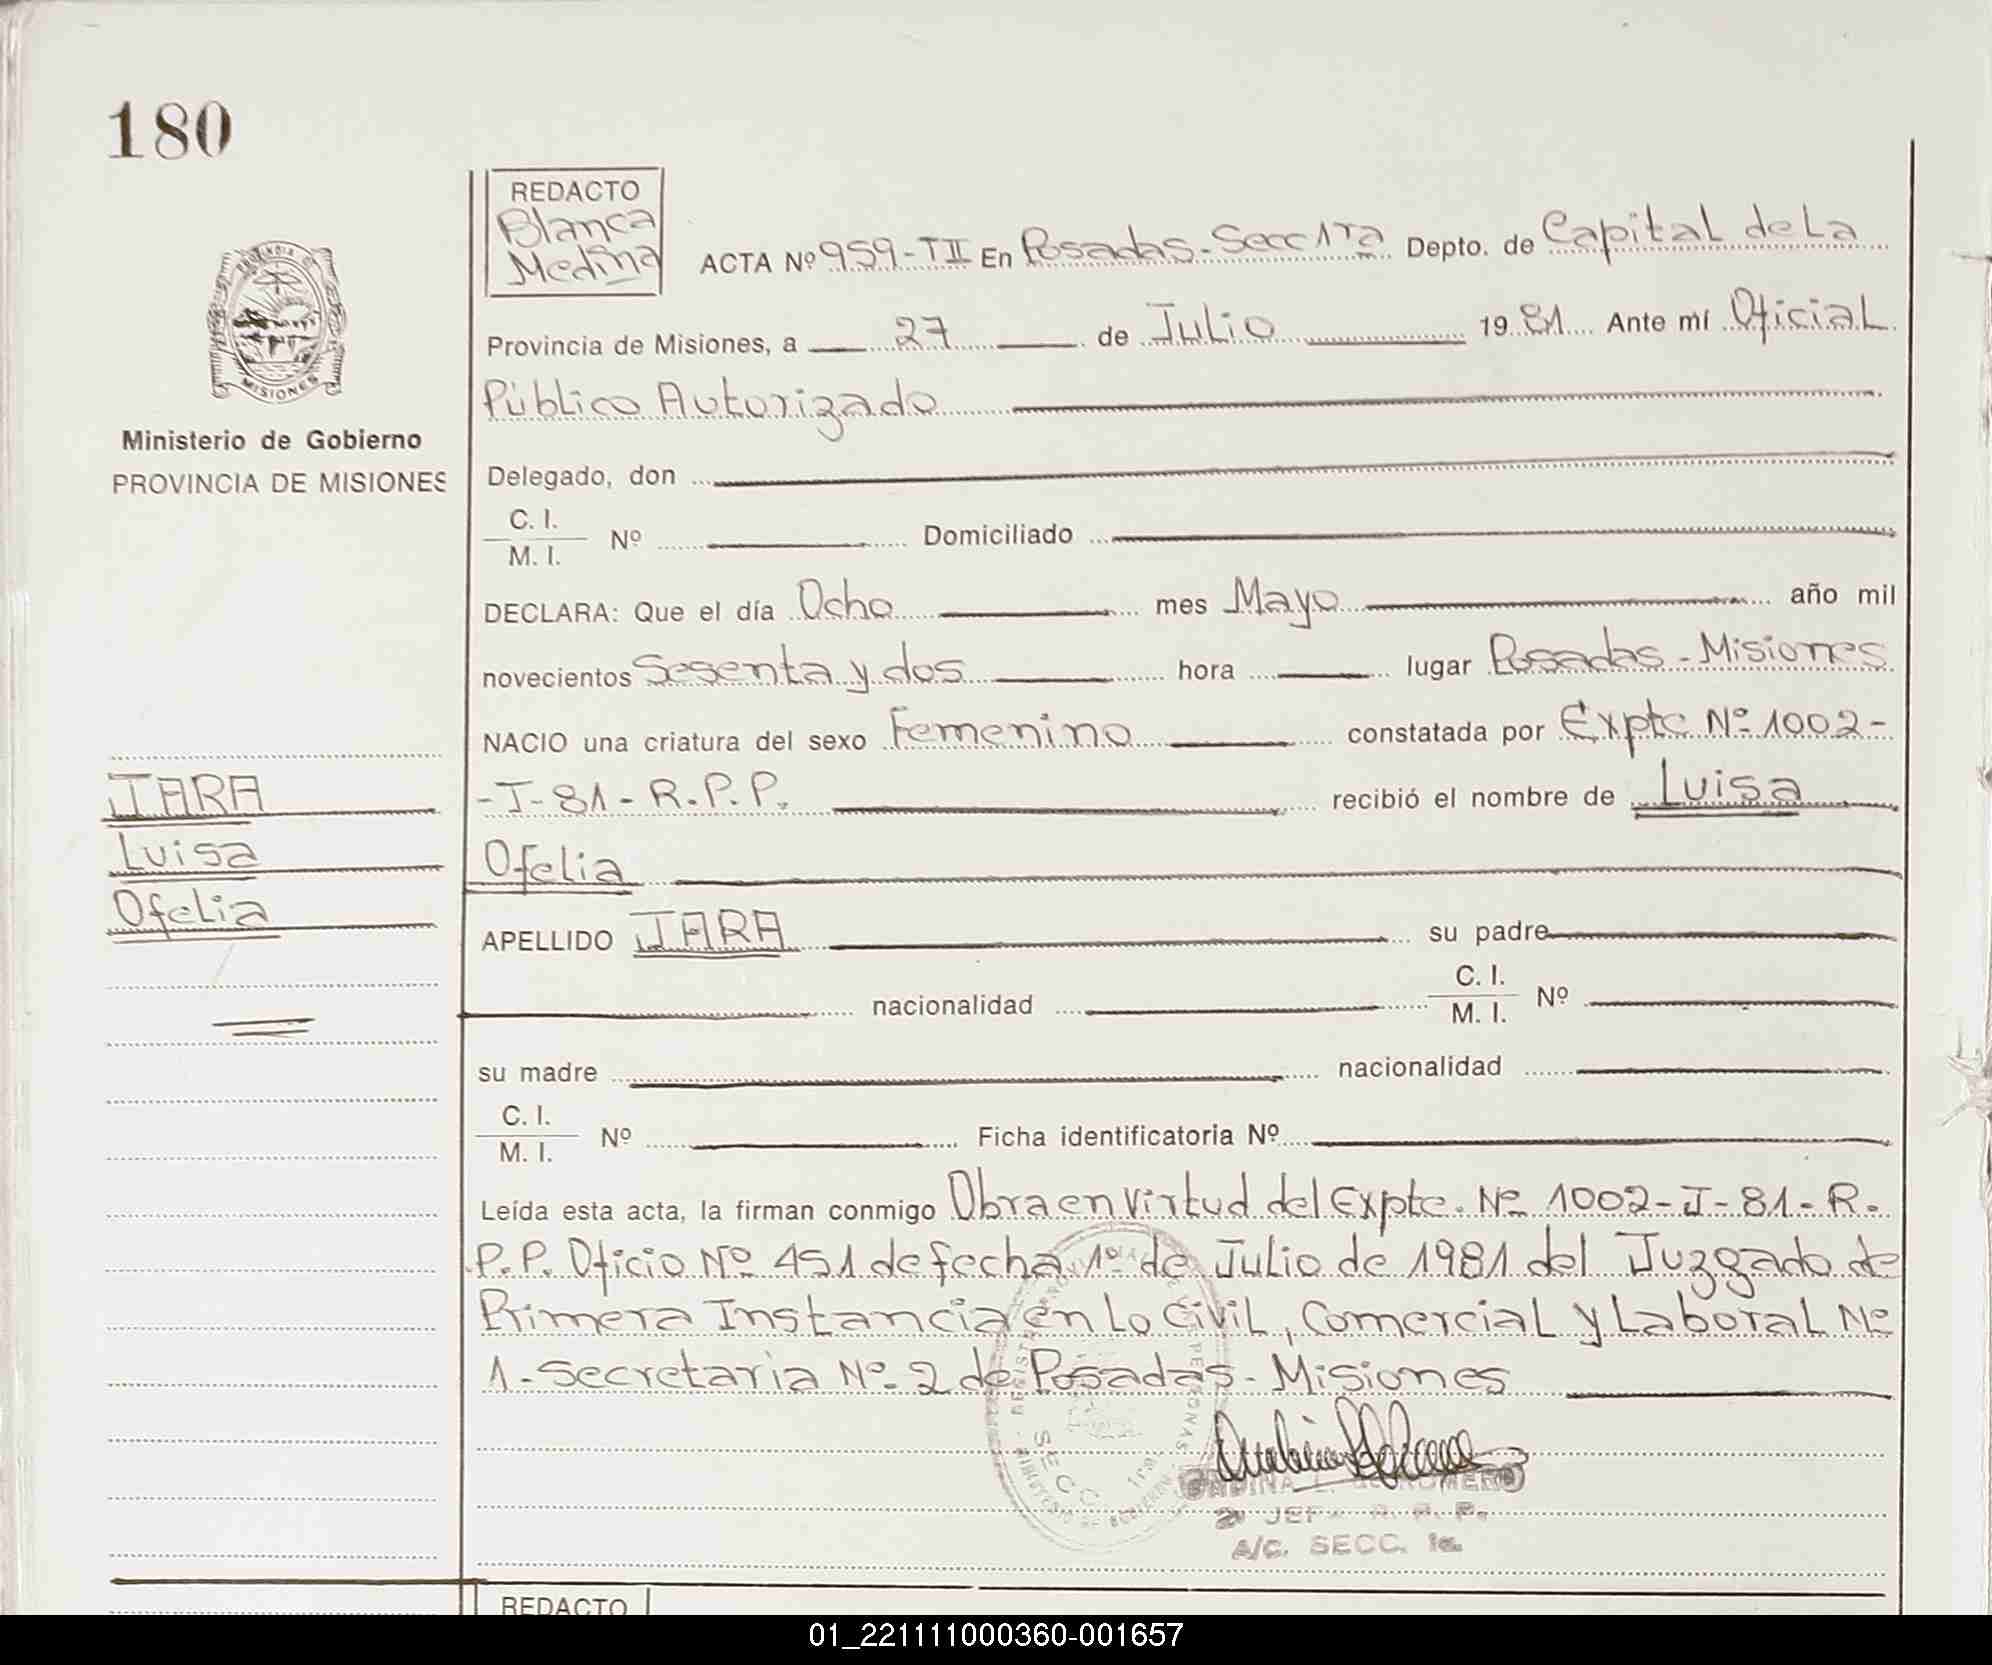 180
REDACTO
Blanca
Medina
ACTA Nº 959-TII En Posadas-Secc 1ra Depto. de Capital de La
Provincia de Misiones, a 27 de Julio 19 81 Ante mí Oficial
Público Autorizado
MISIONES
Ministerio de Gobierno
PROVINCIA DE MISIONES
Delegado, don
C. I.
M. I. Nº Domiciliado
DECLARA: Que el día Ocho mes Mayo año mil
novecientos Sesenta y dos hora lugar Posadas - Misiones
NACIO una criatura del sexo Femenino constatada por Expte Nº 1002-
-J-81-R.P.P. recibió el nombre de Luisa
Ofelia
JARA
Luisa
Ofelia
APELLIDO JARA su padre
nacionalidad C. I.
M. I. Nº
su madre nacionalidad
C. I.
M. I. Nº Ficha identificatoria Nº
Leída esta acta, la firman conmigo Obra en virtud del Expte. Nº 1002-J-81-R.
P.P. Oficio Nº 451 de fecha 1º de Julio de 1981 del Juzgado de
Primera Instancia en Lo Civil, Comercial y Laboral Nº
1-Secretaria Nº 2 de Posadas - Misiones
SECC 1ra
ROMERO
A/C. SECC. 1a.
REDACTO
01_221111000360-001657